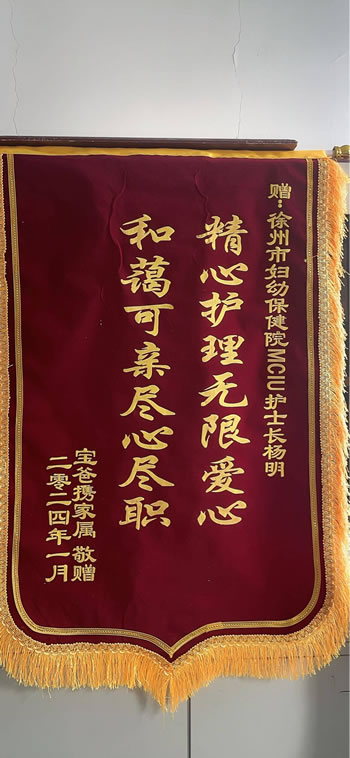 赠：徐州市妇幼保健院MCIU护士长杨明
精心护理无限爱心
和蔼可亲尽心尽职
宝爸携家属 敬赠
二零二四年一月